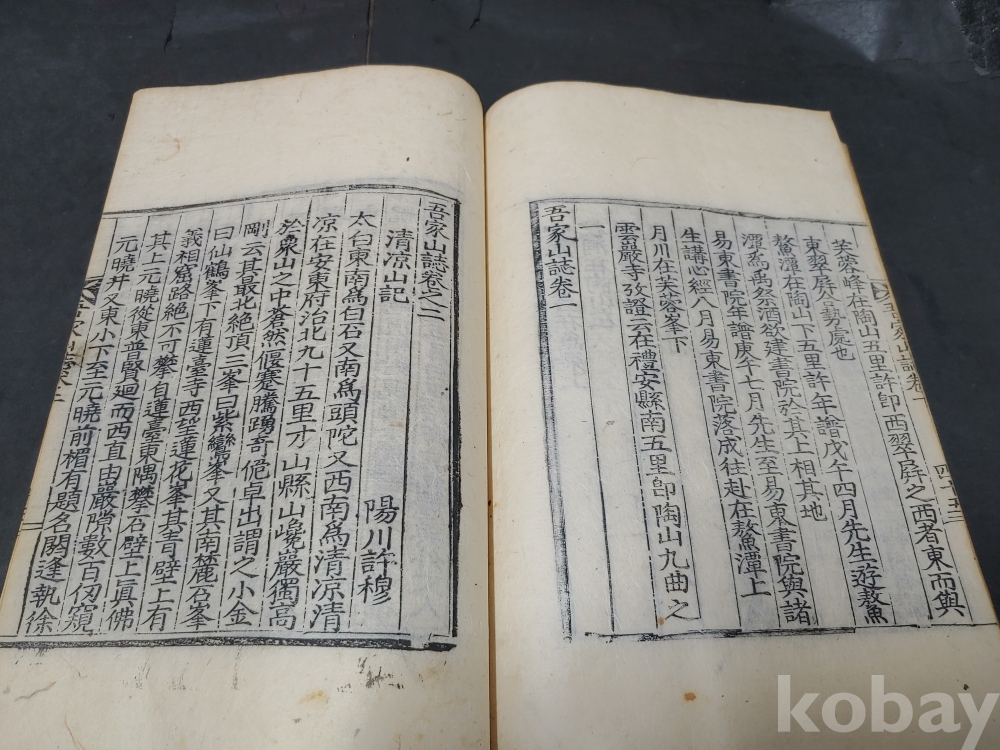 芙蓉峰在陶山五里許即西翠屛之西者東而與
東翠屛合勢處也
鰲潭在陶山下五里許年譜戊午四月先生遊鰲魚
潭爲禹祭酒欲建書院於其上相其地
易東書院年譜庚午七月先生至易東書院與諸
生講心經八月易東書院落成往赴在鰲魚潭上
月川在芙蓉峯下
雲巖寺攷證云在禮安縣南五里即陶山九曲之
一
吾家山誌卷一
吾家山誌卷之二
淸凉山記
陽川許穆
太白東南爲白石又南爲頭陀又西南爲淸凉淸
凉在安東府治北九十五里才山縣山巉巖獨高
於衆山之中蒼然偃蹇騰踴奇佹卓出謂之小金
剛云其最北絶頂三峯曰紫鸞峯又其南麓石峯
曰仙鶴峯下有蓮臺寺西望蓮花峯其靑壁上有
義相窟路絶不可攀自蓮臺東隅攀石壁上眞佛
其上元曉從東普賢廻而西直由巖隙數百仞窺
元曉井又東小下至元曉前楣有題名閼逢執徐
kobay